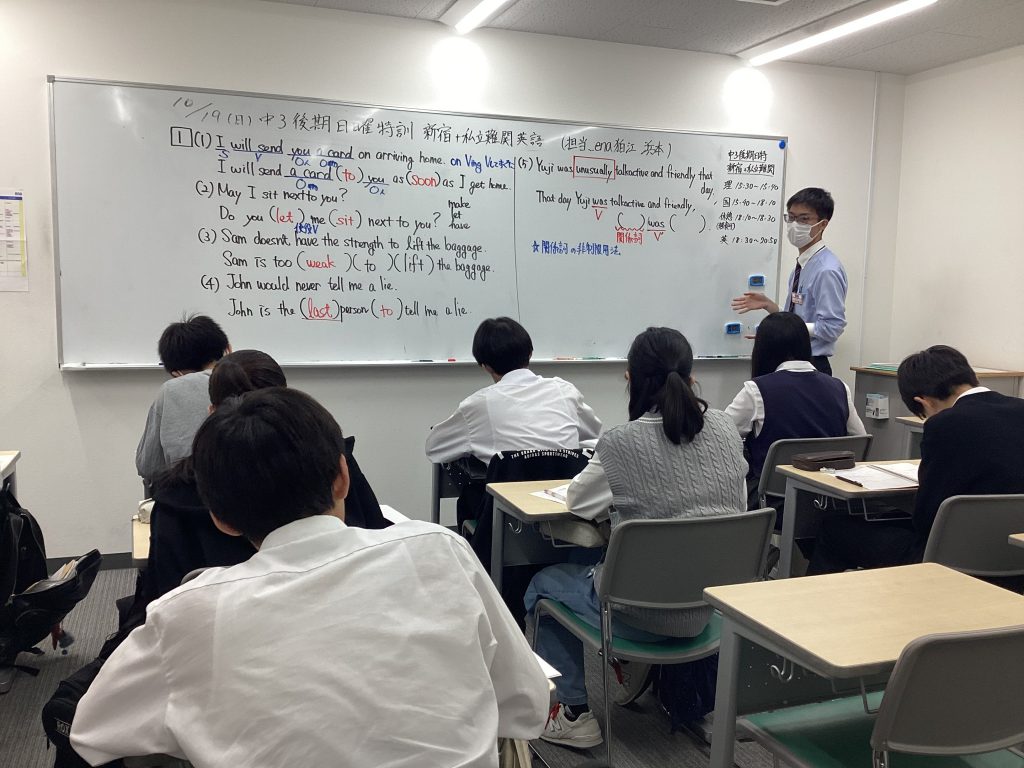 10/19(日) 中3後期日曜特訓 新宿+私立難関英語 (担当 ena狛江 浜本)
1 (1) I will send you a card on arriving home. on Ving Vして来た
S V O人 O物
I will send a card (to) you as (soon) as I get home.
O物 O人
(2) May I sit next to you?
Do you (let) me (sit) next to you?
make
let
have
使役V
(3) Sam doesn't have the strength to lift the baggage.
Sam is too (weak)(to)(lift) the baggage.
(4) John would never tell me a lie.
John is the (last) person (to) tell me a lie.
(5) Yuji was unusually talkactive and friendly that day.
That day Yuji was talkactive and friendly,
V
( ) was ( ).
関係詞 V'
☆関係詞の非制限用法。
中3後期日特
新宿+私立難関
理 15:30-15:40
国 15:40-18:10
休憩 18:10-18:30
英 18:30-20:50